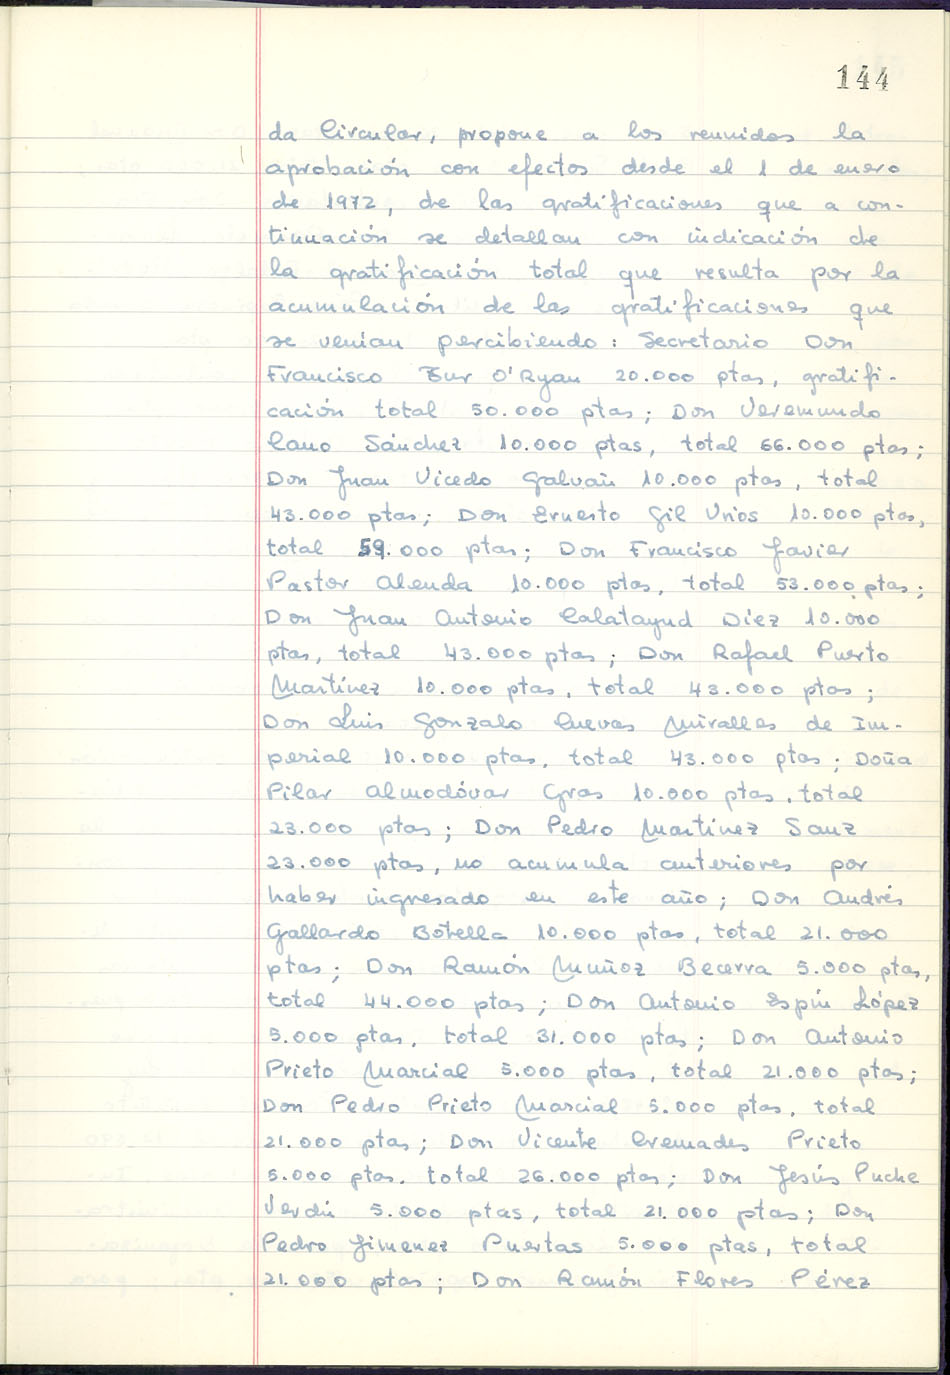 144
da Circular, propone a los reunidos la
aprobación con efectos desde el 1 de enero
de 1972, de las gratificaciones que a con-
tinuación se detallan con indicación de
la gratificación total que resulta por la
acumulación de las gratificaciones que
se venian percibiendo: Secretario Don
Francisco Zur O'Ryan 20.000 ptas, gratifi-
cación total 50.000 ptas; Don Veremundo
Cano Sánchez 10.000 ptas, total 66.000 ptas;
Don Juan Vicedo Galvañ 10.000 ptas, total
43.000 ptas; Don Ernesto Gil Urios 10.000 ptas,
total 59.000 ptas; Don Francisco Javier
Pastor Alenda 10.000 ptas, total 53.000 ptas;
Don Juan Antonio Calatayud Diez 10.000
ptas, total 43.000 ptas; Don Rafael Puerto
Martínez 10.000 ptas, total 43.000 ptas;
Don Luis Gonzalo Cuevas Miralles de Im-
perial 10.000 ptas, total 43.000 ptas; Doña
Pilar Almodóvar Gras 10.000 ptas, total
23.000 ptas; Don Pedro Martínez Sanz
23.000 ptas, no acumula anteriores por
haber ingresado en este año; Don Andrés
Gallardo Botella 10.000 ptas, total 21.000
ptas; Don Ramón Muñoz Becerra 5.000 ptas,
total 44.000 ptas; Don Antonio Espín López
5.000 ptas, total 31.000 ptas; Don Antonio
Prieto Marcial 5.000 ptas, total 21.000 ptas;
Don Pedro Prieto Marcial 5.000 ptas, total
21.000 ptas; Don Vicente Cremades Prieto
5.000 ptas, total 26.000 ptas; Don Jesús Puche
Verdú 5.000 ptas, total 21.000 ptas; Don
Pedro Jimenez Puertas 5.000 ptas, total
21.000 ptas; Don Ramón Flores Pérez